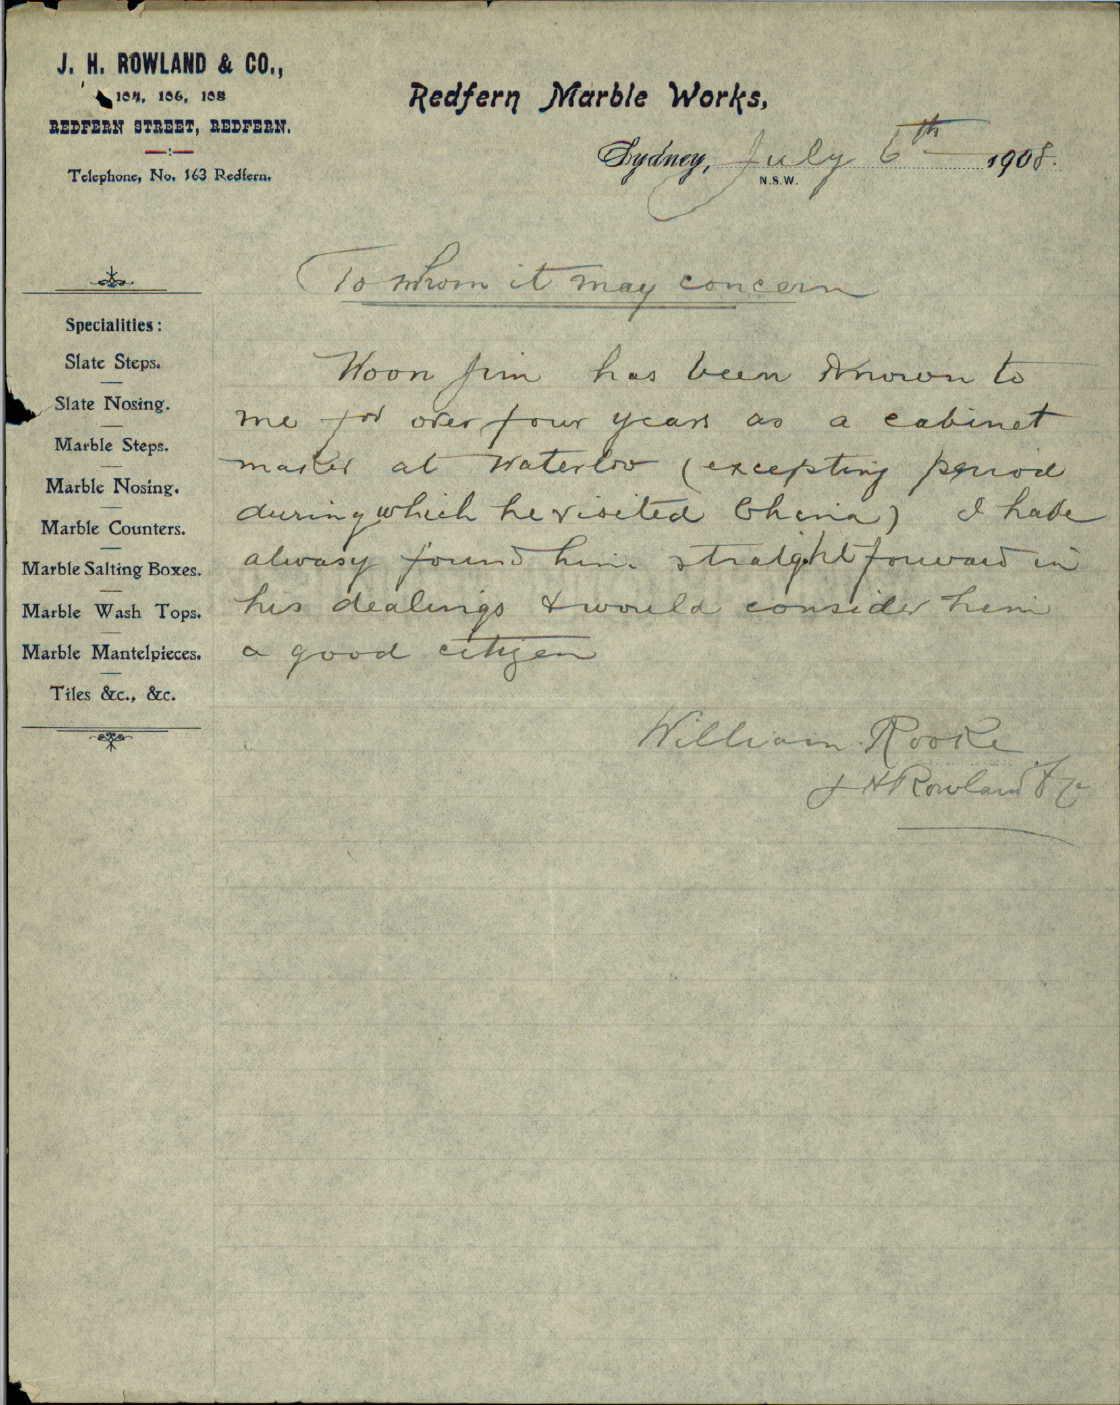 J. H. ROWLAND & CO.,
104, 106, 108
REDFERN STREET, REDFERN.
Telephone, No. 163 Redfern.
Redfern Marble Works,
Sydney, July 6th 1908.
N.S.W.
To whom it may concern
Specialities:
Slate Steps.
Slate Nosing.
Marble Steps.
Marble Nosing.
Marble Counters.
Marble Salting Boxes.
Marble Wash Tops.
Marble Mantelpieces.
Tiles &c., &c.
Woon Jim has been known to
me for over four years as a cabinet
maker at Waterloo (excepting period
during which he visited China) I have
alwasy found him straightforward in
his dealings & would consider him
a good citizen
William Rooke
J H Rowland & Co